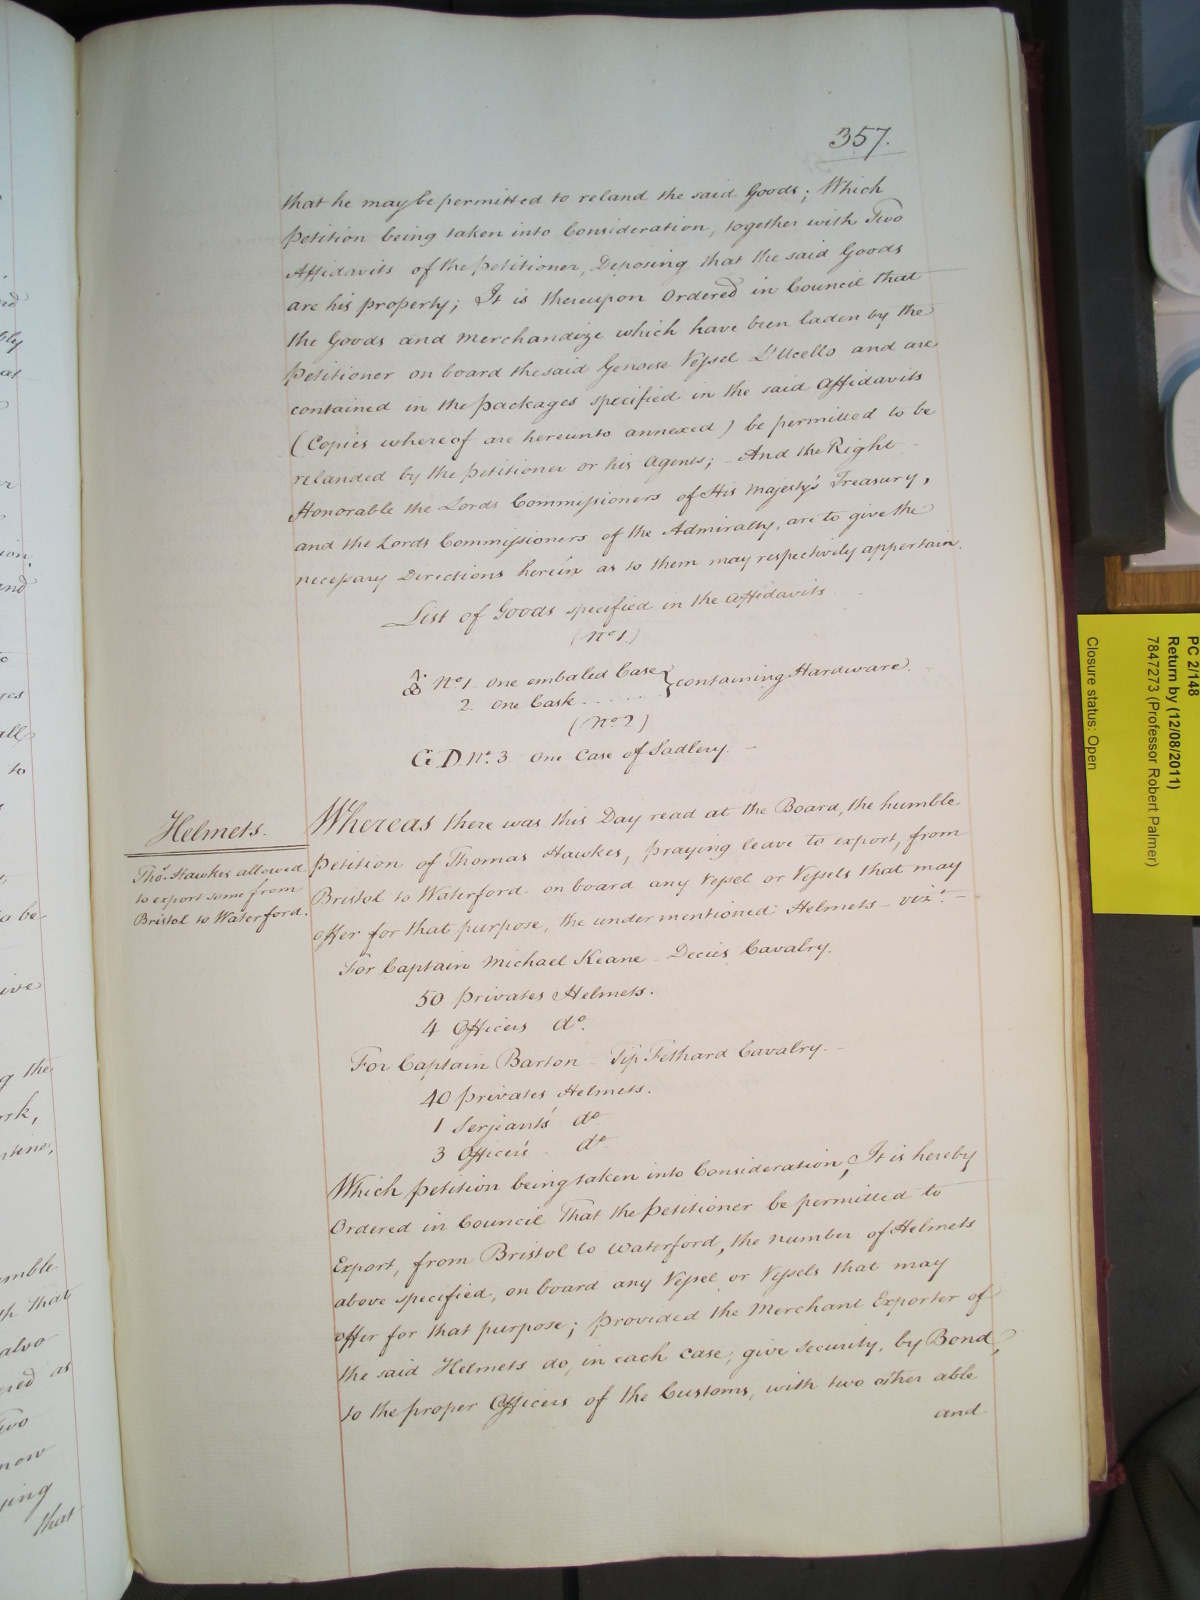 357.
that he may be permitted to reland the said Goods; Which
Petition being taken into Consideration, together with Two
Affidavits of the Petitioner, Deposing that the said Goods
are his property; It is thereupon Ordered in Council that
the Goods and Merchandize which have been laden by the
Petitioner on board the said Genoese Vessel L'Ucello and are
contained in the packages specified in the said Affidavits
(Copies whereof are hereunto annexed) be permitted to be
relanded by the Petitioner or his Agents; And the Right
Honorable the Lords Commissioners of His Majesty's Treasury,
and the Lords Commissioners of the Admiralty, are to give the
necessary Directions herein as to them may respectively appertain.
List of Goods specified in the Affidavits
(No 1.)
No 1. One embaled Case } containing Hardware.
2. One Cask . . . . .
(No 2)
G.D. No. 3 One Case of Sadlery. -
Helmets.
Thos. Hawkes allowed
to export some from
Bristol to Waterford.
Whereas there was this Day read at the Board, the humble
Petition of Thomas Hawkes, praying leave to export, from
Bristol to Waterford on board any Vessel or Vessels that may
offer for that purpose, the undermentioned Helmets - vizt. -
For Captain Michael Keane - Decies Cavalry.
50 Privates Helmets.
4 Officers do.
For Captain Barton - Tip. Fethard Cavalry. -
40 Privates Helmets.
1 Serjeants' do
3 Officers do
Which Petition being taken into Consideration, It is hereby
Ordered in Council That the Petitioner be permitted to
Export, from Bristol to Waterford, the number of Helmets
above specified, on board any Vessel or Vessels that may
offer for that purpose; provided the Merchant Exporter of
the said Helmets do, in each case, give security, by Bond,
to the proper Officers of the Customs, with two other able
and
PC 2/148
Return by (12/08/2011)
7847273 (Professor Robert Palmer)
Closure status: Open